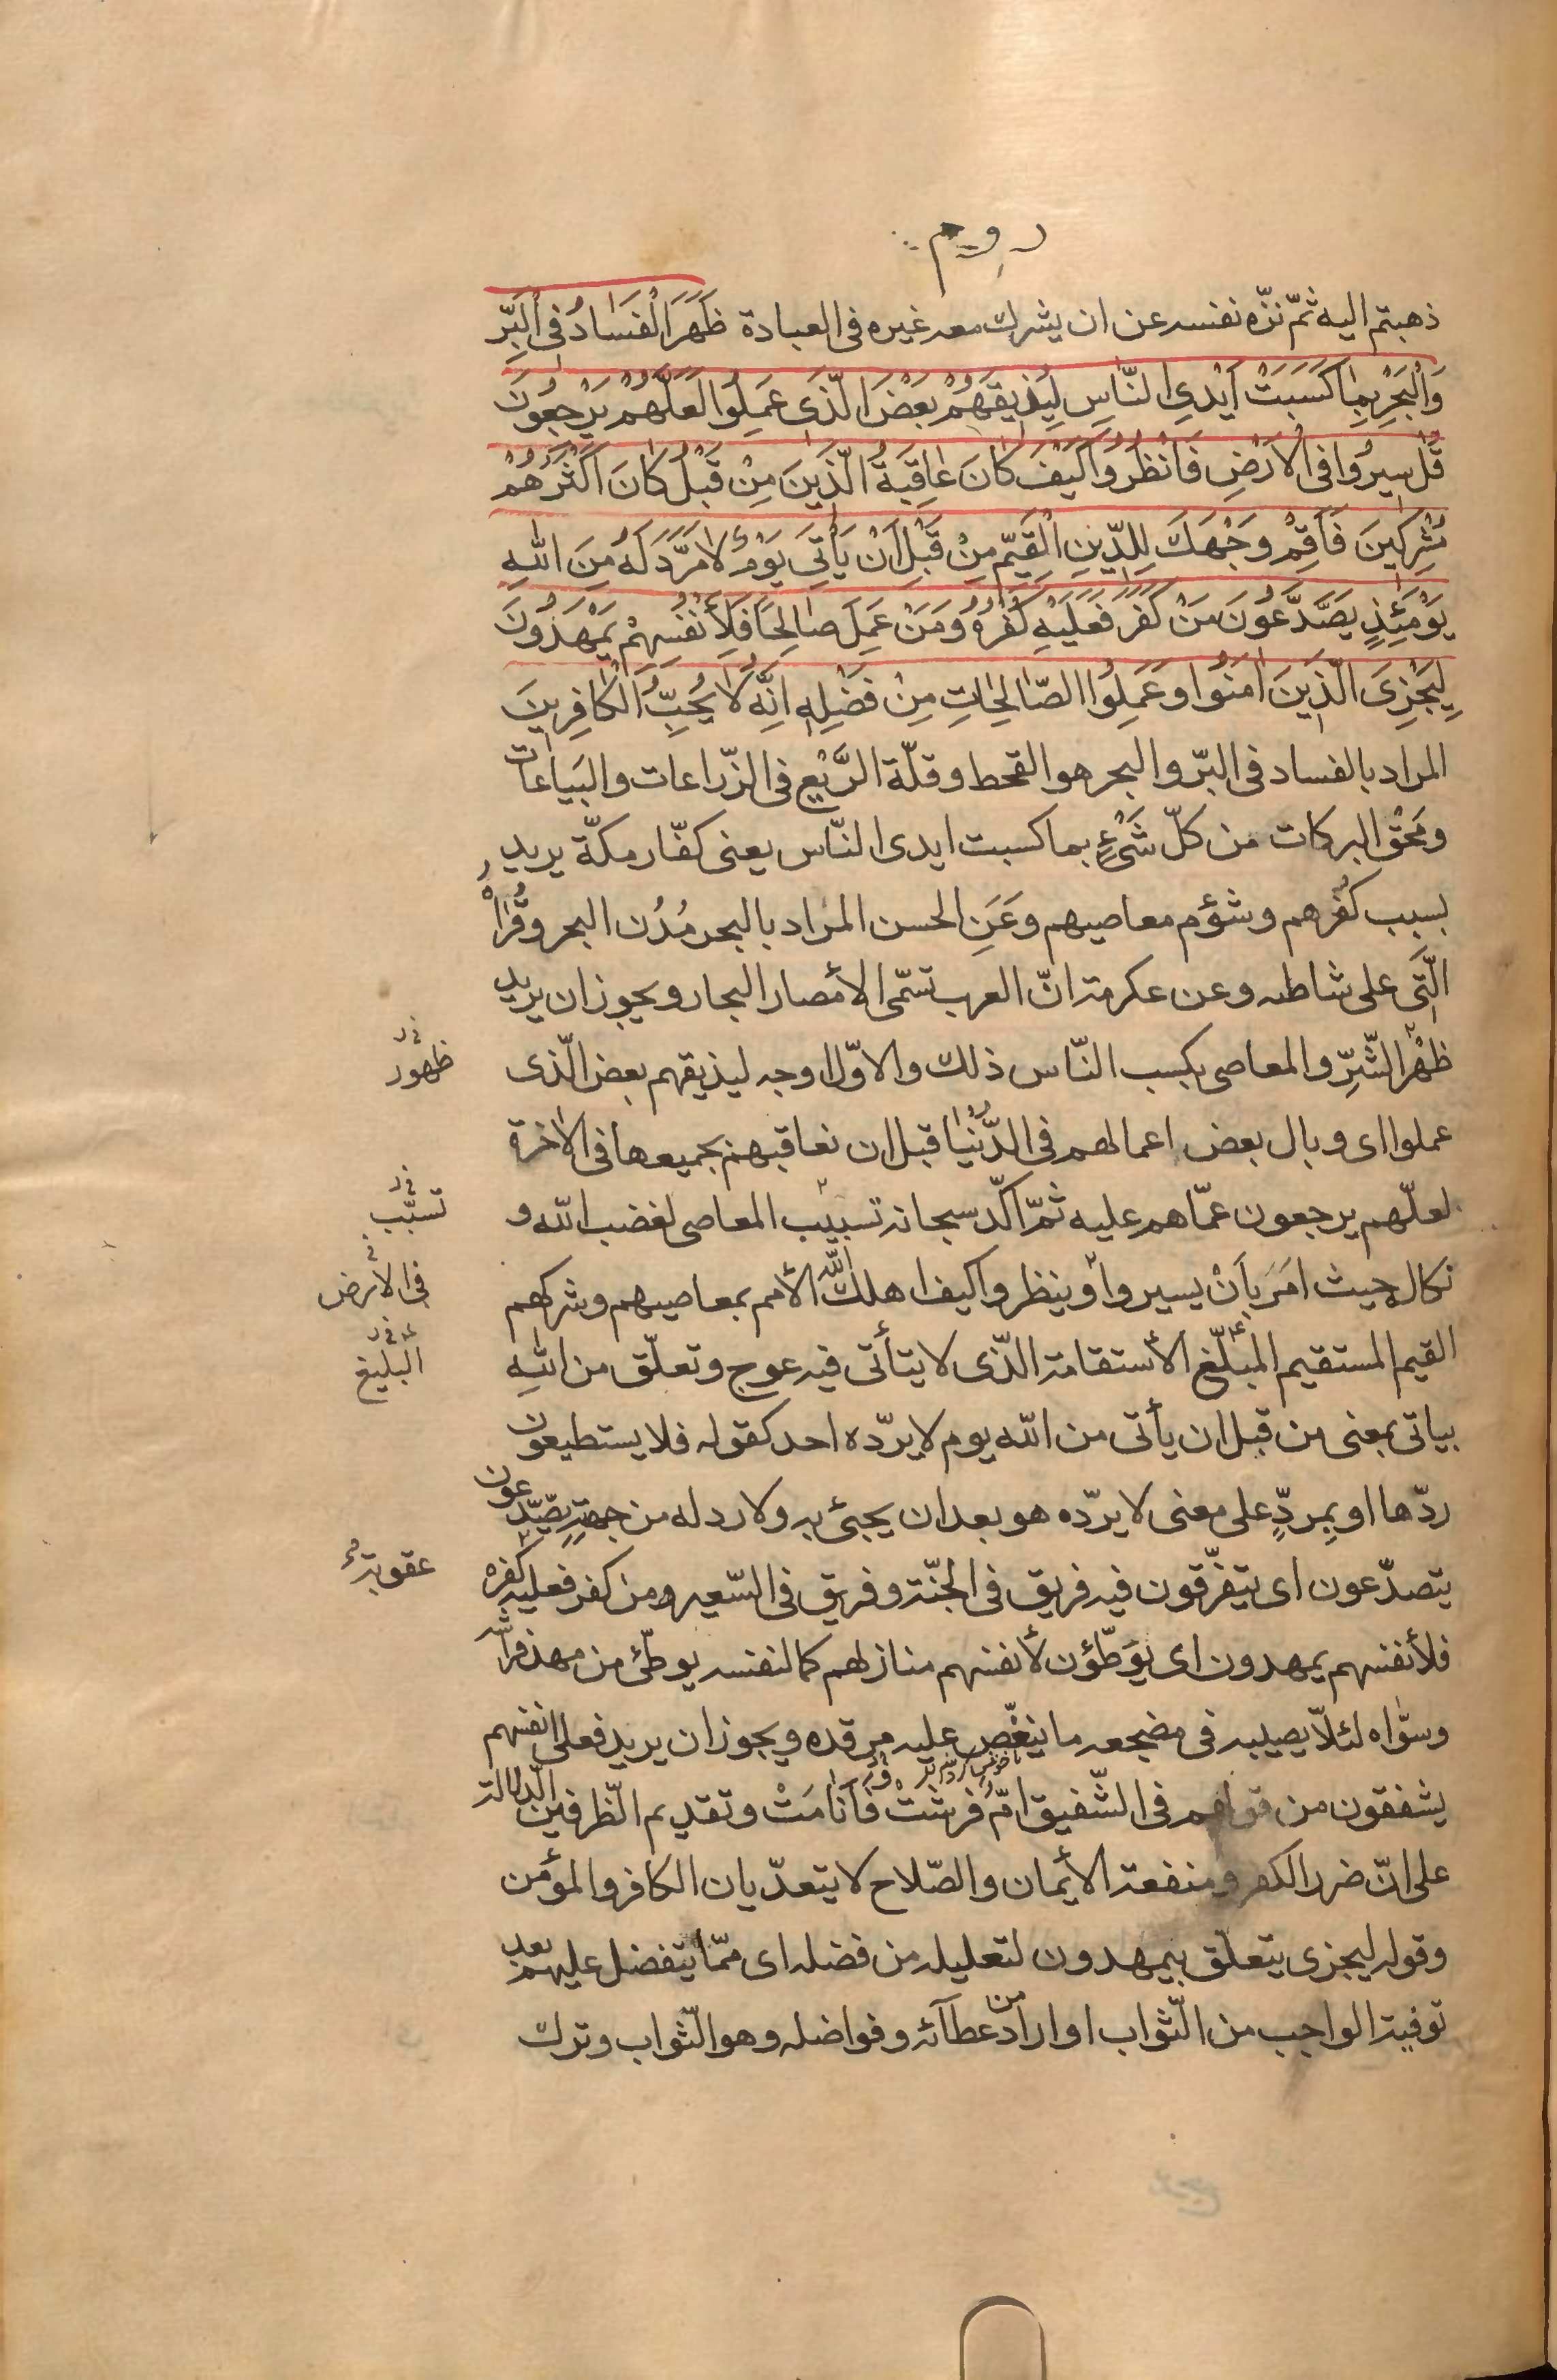 روم
ذهبتم اليه ثمّ نزّه نفسه عن ان يشرك معه غيره فى العبادة ظَهَرَ الْفَسَادُ فِى الْبَرِّ
وَالْبَحْرِ بِمٰا كَسَبَتْ اَيْدِى النّٰاسِ لِيُذيقَهُمْ بَعْضَ الَّذى عَمِلُوا لَعَلَّهُمْ يَرْجِعُونَ
قُلْ سيرُوا فِى الْاَرْضِ فَانْظُرُوا كَيْفَ كٰانَ عٰاقِبَةُ الَّذينَ مِنْ قَبْلُ كٰانَ اَكْثَرُهُمْ
مُشْرِكينَ فَاَقِمْ وَجْهَكَ لِلدّينِ الْقَيِّمِ مِنْ قَبْلِ اَنْ يَأْتِىَ يَوْمٌ لٰا مَرَدَّ لَهُ مِنَ اللّٰهِ
يَوْمَئِذٍ يَصَّدَّعُونَ مَنْ كَفَرَ فَعَلَيْهِ كُفْرُهُ وَمَنْ عَمِلَ صٰالِحًا فَلِأَنْفُسِهِمْ يَمْهَدُونَ
لِيَجْزِىَ الَّذينَ اٰمَنُوا وَعَمِلُوا الصّٰالِحٰاتِ مِنْ فَضْلِهِ اِنَّهُ لٰا يُحِبُّ الْكٰافِرينَ
المراد بالفساد فى البرّ والبحر هو القحط وقلّة الرَّيْع فى الزّراعات والبَياعات
ومَحْق البركات من كلّ شَىْءٍ بما كسبت ايدى النّاس يعنى كفّار مكّة يريد
بسبب كفْرهم وشؤم معاصيهم وعَنِ الحسن المراد بالبحر مُدُن البحر وقُراهُ
الّتى على شاطئه وعن عكرمة انّ العرب تسمّى الأمصار البحار ويجوز ان يريد
ظَهْر الشّرِّ والمعاصى بكسب النّاس ذلك والاوّل اوجه ليذيقهم بعض الّذى
ظهور
عملوا اى وبال بعض اعمالهم فى الدُّنْيا قبل ان نعاقبهم بجميعها فى الآخرة
لعلّهم يرجعون عمّا هم عليه ثمّ اكّد سبحانه تسبيب المعاصى لغضب اللّه و
تسبّب
نكاله حيث امَرَ بِاَنْ يسيروا وينظروا كيف اهلك اللّه الأمم بمعاصيهم وشركهم
فى الأرض
القيم المستقيم المبلّغ الأستقامة الّذى لا يتأتّى فيه عوج وتعلّق من اللّهِ
البليغ
بياتى بمعنى من قبل ان يأتى من اللّه يوم لا يردّه احد كقوله فلا يستطيعون
ردّها او بِمردٍّ على معنى لا يردّه هو بعد ان يجيئ به ولا رد له من جهتِهِ يصّدّعون
يتصدّعون اى يتفرّقون فيه فريق فى الجنّة وفريق فى السّعير ومن كفر فعليه كفره
عقوبة
فلأنفسهم يمهدون اى يوَطّؤن لأنفسهم منازلهم كما لنفسه يوطّئ من مهد فراشه
وسوّاه لئلاّ يصيبه فى مضجعه ما ينغّص عليه مرقده ويجوز ان يريد فعلى انفسهم
يشفقون من قولهم فى الشّفيق امّ فرشتْ فَاَنَامَتْ وتقديم الظّرفين الدّلالة
على انّ ضرر الكفر ومنفعة الأيمان والصّلاح لا يتعدّيان الكافر والمؤمن
وقوله ليجزى يتعلّق بيمهدون لتعليله من فضله اى ممّا يتفضل عليهم بعد
توفية الواجب من الثّواب او اراد من عطآئه وفواضله وهو الثّواب وترك